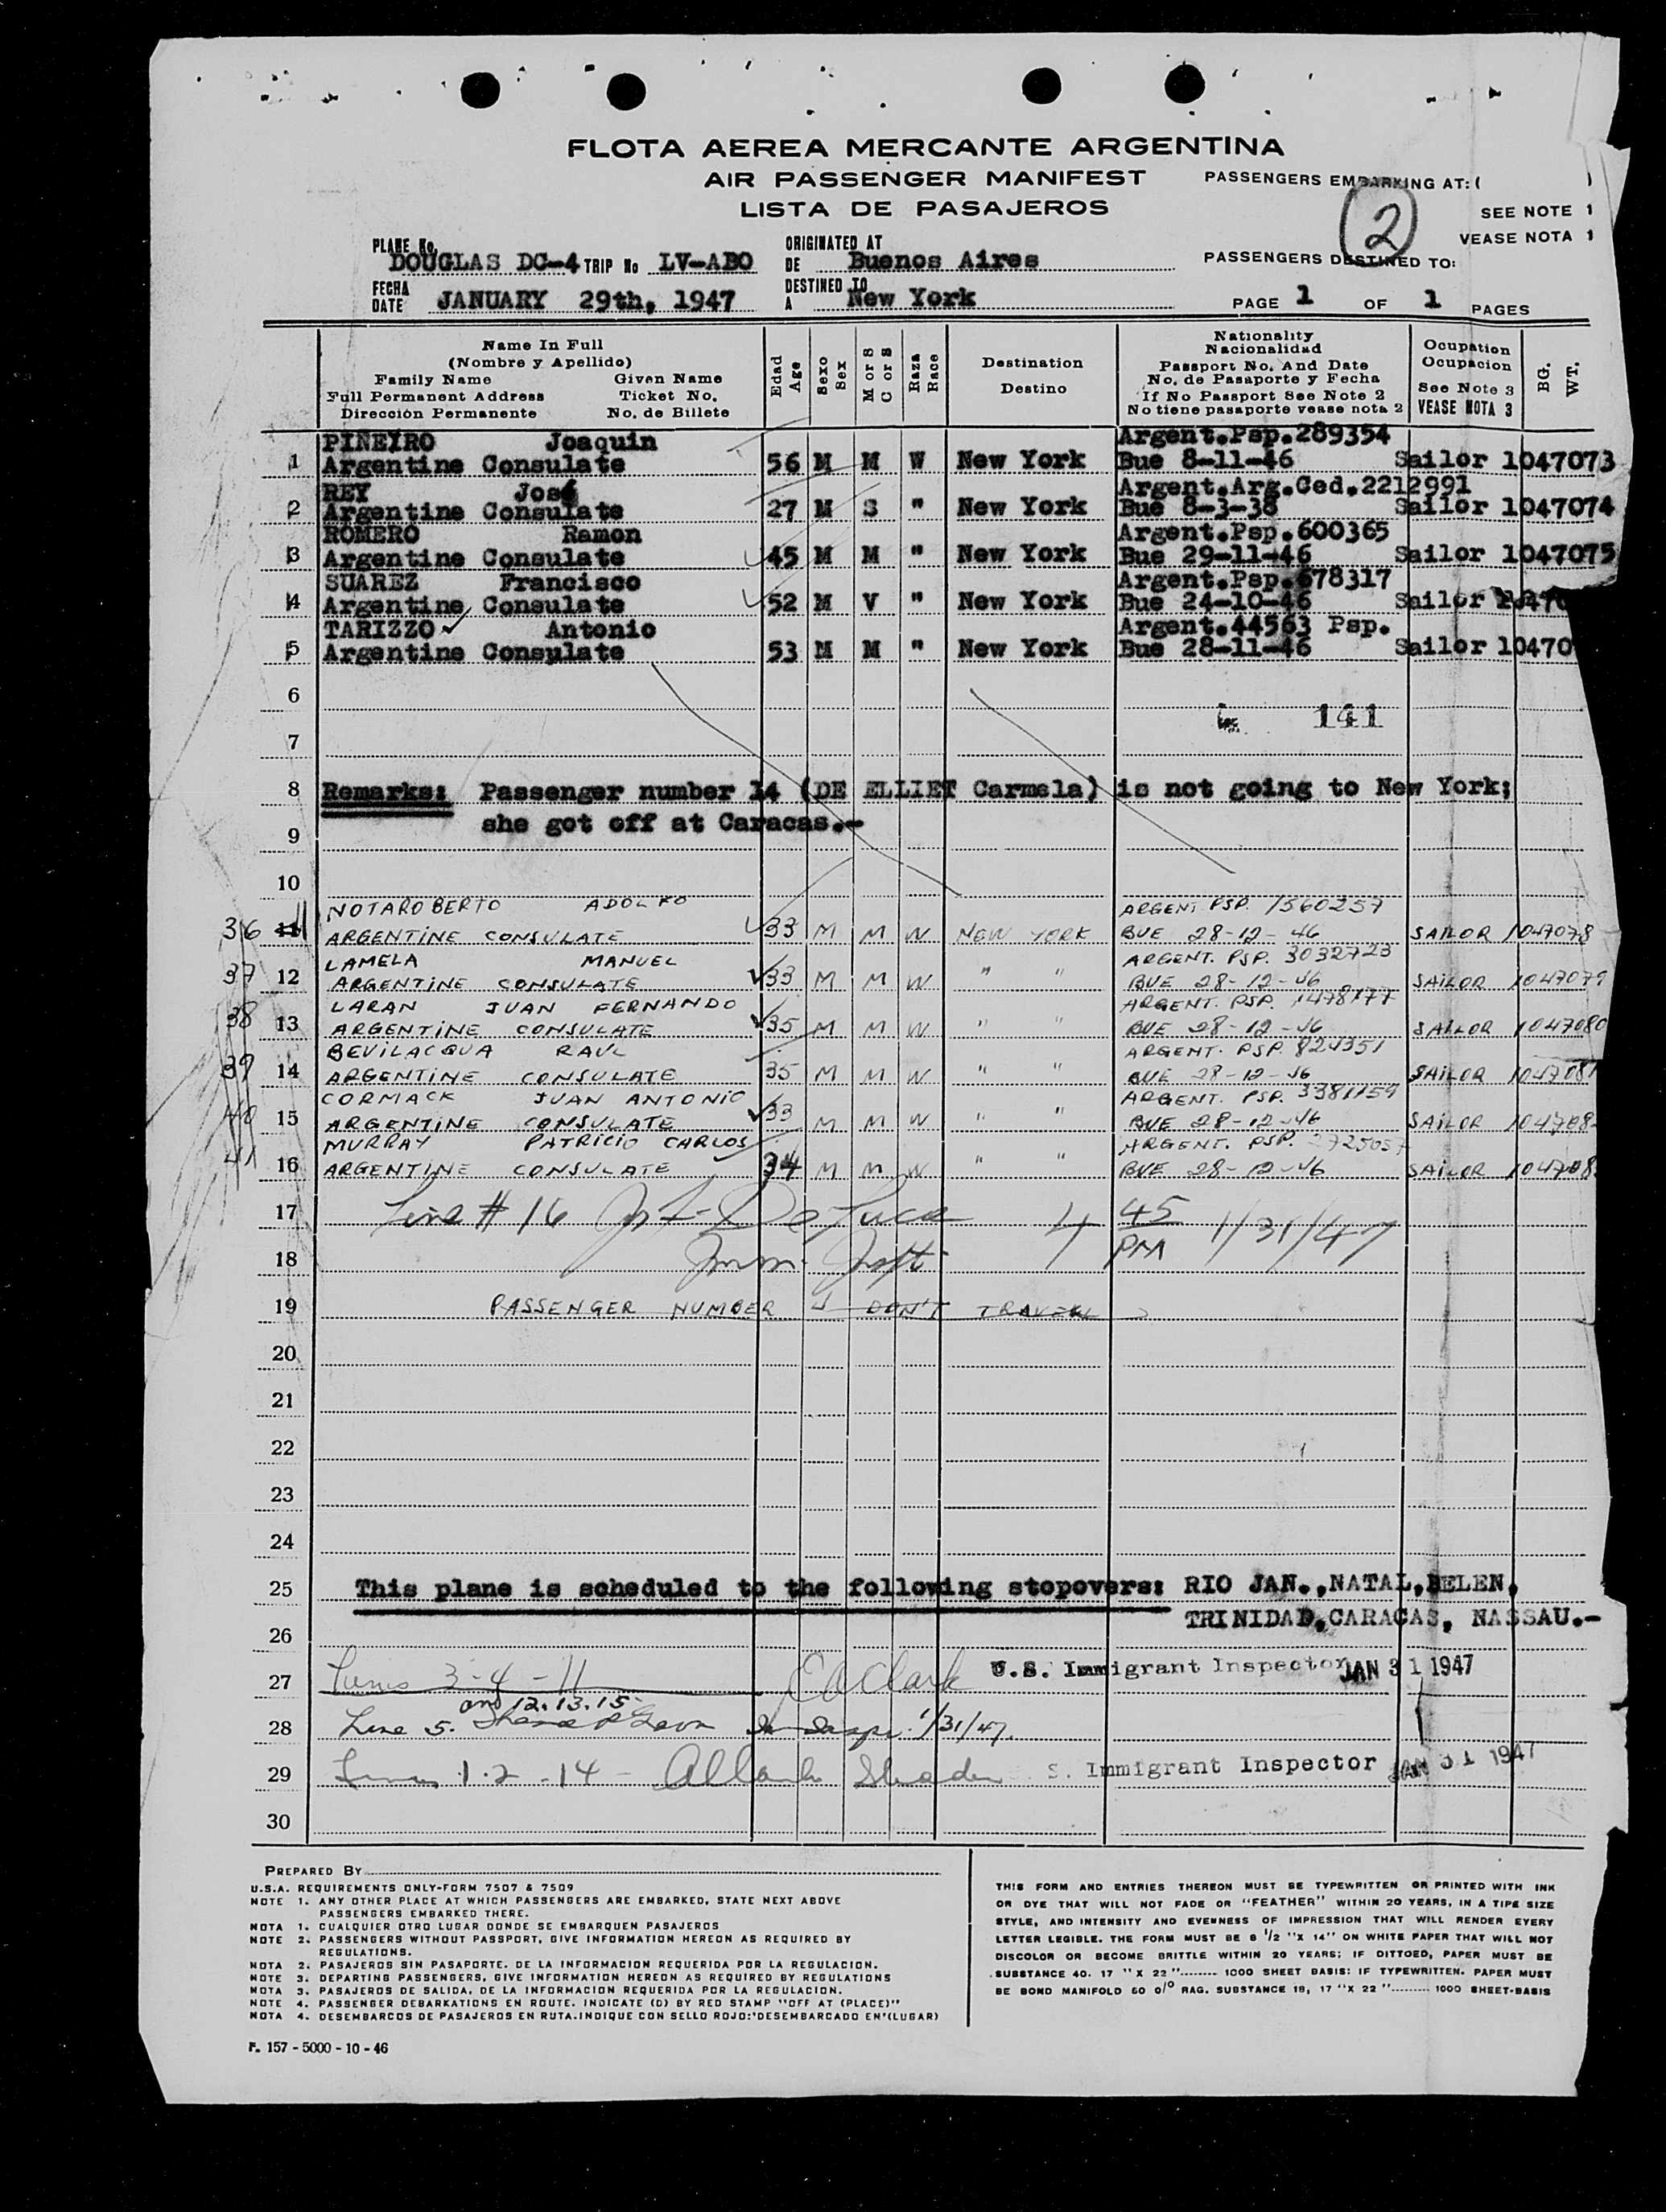 FLOTA AEREA MERCANTE ARGENTINA
AIR PASSENGER MANIFEST
LISTA DE PASAJEROS
PASSENGERS EMBARKING AT: ( )
SEE NOTE 1
VEASE NOTA 1
2
PASSENGERS DESTINED TO:
PLANE No. DOUGLAS DC-4 TRIP No LV-ABO
ORIGINATED AT
DE Buenos Aires
FECHA
DATE JANUARY 29th, 1947
DESTINED TO
A New York
PAGE 1 OF 1 PAGES
Name In Full
(Nombre y Apellido)
Family Name Given Name
Full Permanent Address Ticket No.
Dirección Permanente No. de Billete
Edad
Age
Sexo
Sex
M or S
C or S
Raza
Race
Destination
Destino
Nationality
Nacionalidad
Passport No. And Date
No. de Pasaporte y Fecha
If No Passport See Note 2
No tiene pasaporte vease nota 2
Ocupation
Ocupacion
See Note 3
VEASE NOTA 3
BG.
WT.
PIÑEIRO Joaquin Argent.Psp.289354
1 Argentine Consulate 56 M M W New York Bue 8-11-46 Sailor 1047073
REY José Argent.Arg.Ced.2212991
2 Argentine Consulate 27 M S " New York Bue 8-3-38 Sailor 1047074
ROMERO Ramon Argent.Psp.600365
3 Argentine Consulate 45 M M " New York Bue 29-11-46 Sailor 1047075
SUAREZ Francisco Argent.Psp.678317
4 Argentine Consulate 52 M V " New York Bue 24-10-46 Sailor
TARIZZO Antonio Argent.44563 Psp.
5 Argentine Consulate 53 M M " New York Bue 28-11-46 Sailor 10470
6
141
7
8 Remarks: Passenger number 14 (DE ELLIET Carmela) is not going to New York;
she got off at Caracas.-
9
10
NOTAROBERTO ADOLFO ARGENT PSP. 1360257
36 11 ARGENTINE CONSULATE 33 M M W NEW YORK BUE 28-12-46 SAILOR 1047078
LAMELA MANUEL ARGENT. PSP. 3032723
37 12 ARGENTINE CONSULATE 33 M M W " " BUE 28-12-46 SAILOR 1047079
LARAN JUAN FERNANDO ARGENT. PSP. 1478177
38 13 ARGENTINE CONSULATE 35 M M W " " BUE 28-12-46 SAILOR 1047080
BEVILACQUA RAUL ARGENT. PSP. 824351
39 14 ARGENTINE CONSULATE 35 M M W " " BUE 28-12-46 SAILOR 1047081
CORMACK JUAN ANTONIO ARGENT. PSP. 3381159
40 15 ARGENTINE CONSULATE 33 M M W " " BUE 28-12-46 SAILOR 104708
MURRAY PATRICIO CARLOS ARGENT. PSP.
41 16 ARGENTINE CONSULATE 34 M M W " " BUE 28-12-46 SAILOR 104708
17 Line # 16 De Luca 4 45 PM 1/31/47
18 Imm. Inspt.
19 PASSENGER NUMBER 4 DON'T TRAVEL
20
21
22
23
24
25 This plane is scheduled to the following stopovers: RIO JAN.,NATAL,BELEN,
TRINIDAD,CARACAS, NASSAU.-
26
27 Lines 3-4-11 Clark U.S. Immigrant Inspector JAN 31 1947
and 12.13.15
28 Line 5. 1/31/47.
29 Lines 1.2-14- S. Immigrant Inspector JAN 31 1947
30
PREPARED BY
U.S.A. REQUIREMENTS ONLY-FORM 7507 & 7509
NOTE 1. ANY OTHER PLACE AT WHICH PASSENGERS ARE EMBARKED, STATE NEXT ABOVE
PASSENGERS EMBARKED THERE.
NOTA 1. CUALQUIER OTRO LUGAR DONDE SE EMBARQUEN PASAJEROS
NOTE 2. PASSENGERS WITHOUT PASSPORT, GIVE INFORMATION HEREON AS REQUIRED BY
REGULATIONS.
NOTA 2. PASAJEROS SIN PASAPORTE. DE LA INFORMACION REQUERIDA POR LA REGULACION.
NOTE 3. DEPARTING PASSENGERS, GIVE INFORMATION HEREON AS REQUIRED BY REGULATIONS
NOTA 3. PASAJEROS DE SALIDA, DE LA INFORMACION REQUERIDA POR LA REGULACION.
NOTE 4. PASSENGER DEBARKATIONS EN ROUTE. INDICATE (D) BY RED STAMP "OFF AT (PLACE)"
NOTA 4. DESEMBARCOS DE PASAJEROS EN RUTA.INDIQUE CON SELLO ROJO:"DESEMBARCADO EN"(LUGAR)
THIS FORM AND ENTRIES THEREON MUST BE TYPEWRITTEN OR PRINTED WITH INK
OR DYE THAT WILL NOT FADE OR "FEATHER" WITHIN 20 YEARS, IN A TIPE SIZE
STYLE, AND INTENSITY AND EVENNESS OF IMPRESSION THAT WILL RENDER EYERY
LETTER LEGIBLE. THE FORM MUST BE 8 1/2 "X 14" ON WHITE PAPER THAT WILL NOT
DISCOLOR OR BECOME BRITTLE WITHIN 20 YEARS; IF DITTOED, PAPER MUST BE
SUBSTANCE 40. 17 "X 22 "........ 1000 SHEET BASIS: IF TYPEWRITTEN. PAPER MUST
BE BOND MANIFOLD 50 0/0 RAG. SUBSTANCE 18, 17 "X 22 "........ 1000 SHEET-BASIS
F. 157 - 5000 - 10 - 46